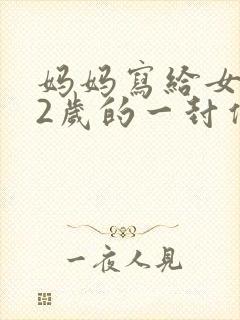 妈妈寫給女
2歲的一封
一夜人見